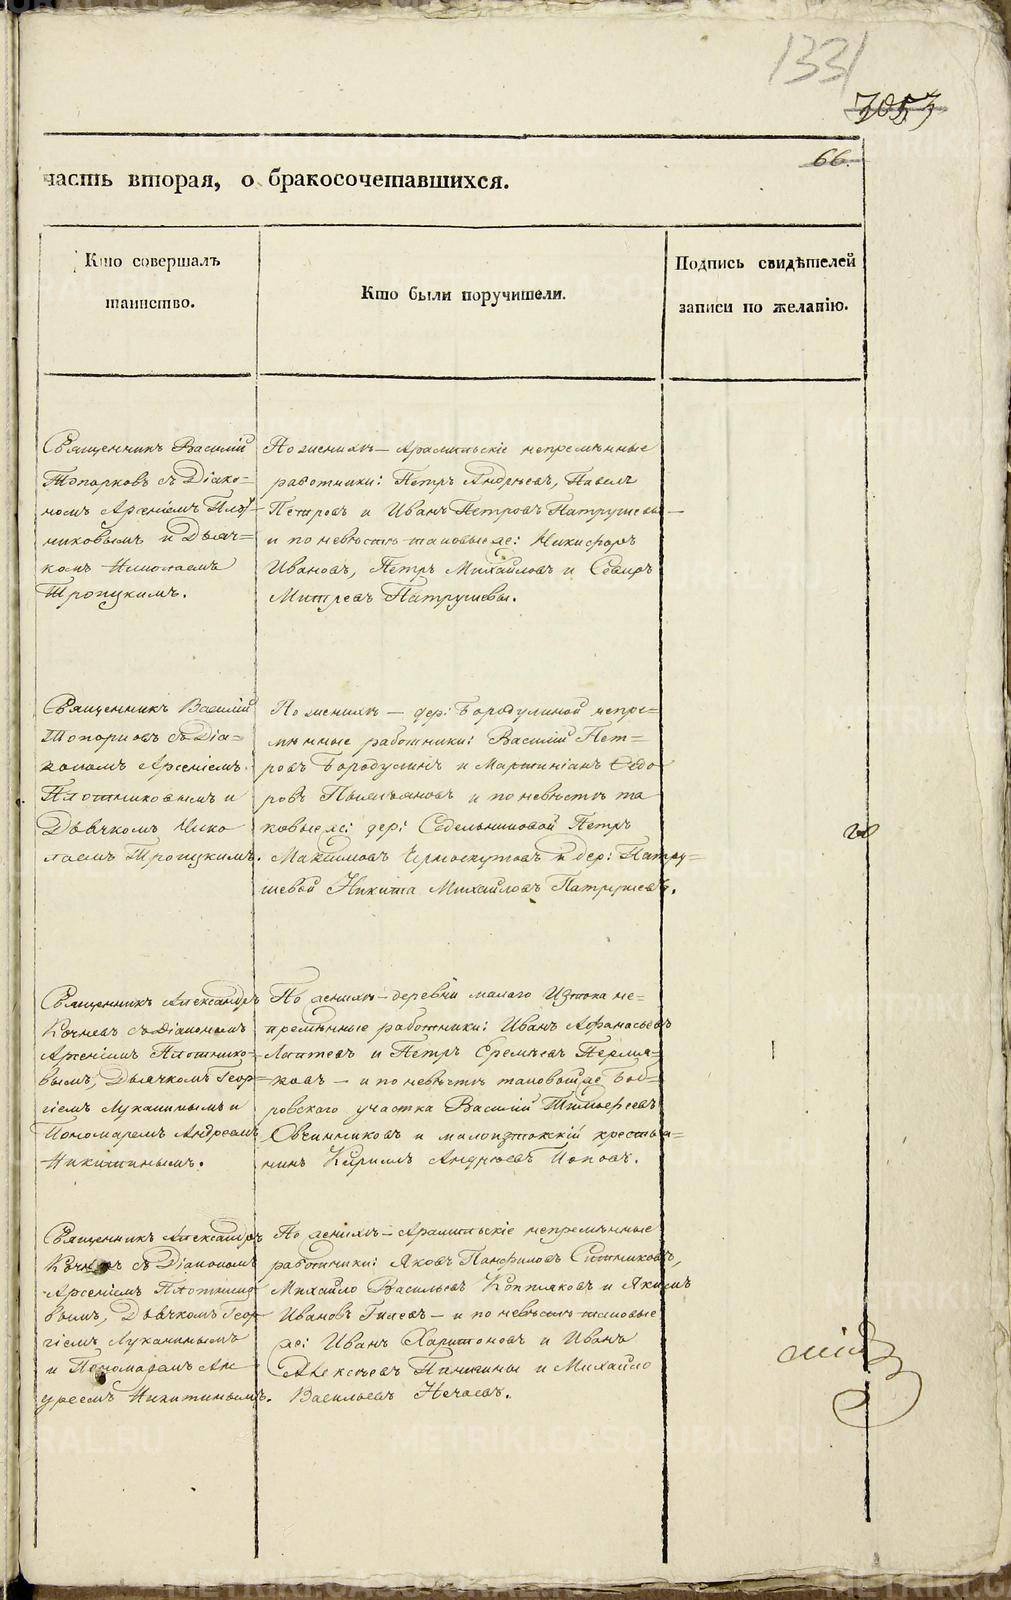 1331
7053
66.
часть вторая, о бракосочетавшихся.
Кто совершалъ
таинство.
Кто были поручители.
Подпись свидѣтелей
записи по желанію.
Священникъ Василій
Топорковъ съ Діако-
номъ Арсеніемъ Плот-
никовымъ и Дьяч-
комъ Николаемъ
Троицкимъ.
По женихѣ — Арамильскіе непремѣнные
работники: Петръ Андрѣевъ, Павелъ
Петровъ и Иванъ Петровъ Патрушевы —
и по невѣстѣ таковые же: Никифоръ
Ивановъ, Петръ Михайловъ и
Митревъ Патрушевы.
Священникъ Василій
Топорковъ съ Діа-
кономъ Арсеніемъ
Плотниковымъ и
Дьячкомъ Нико
лаемъ Троицкимъ.
По женихѣ — дер: Бородулиной непре-
мѣнные работники: Василій Пет-
ровъ Бородулинъ и Мартиніанъ Ѳедо
ровъ и по невѣстѣ та
ковые же: дер: Седельниковой Петръ
Максимовъ Черноскутовъ и дер: Патру-
шевой Никита Михайловъ Патрушевъ.
Священникъ Александръ
Кочневъ съ Діакономъ
Арсеніемъ Плотнико-
вымъ, Дьячкомъ Геор-
гіемъ Луканинымъ и
Пономаремъ Андреемъ
Никитинымъ.
По женихѣ — деревни малаго Истока не-
премѣнные работники: Иванъ Афанасьевъ
Лаптевъ и Петръ Еремѣевъ Пермя-
ковъ — и по невѣстѣ таковой же Боб-
ровскаго участка Василій Тимофеевъ
Овчинниковъ и малоистокскій крестья-
нинъ Кирилъ Андрѣевъ Поповъ.
Священникъ Александръ
Кочневъ съ Діакономъ
Арсеніемъ Плотнико
вымъ, Дьячкомъ Геор
гіемъ Луканинымъ
и Пономаремъ Ан
дреемъ Никитинымъ.
По женихѣ — Арамильскіе непремѣнные
работники: Яковъ Панфиловъ Ситниковъ,
Михайло Васильевъ и Якимъ
Ивановъ Гилевъ — и по невѣстѣ таковые
же: Иванъ Харитоновъ и Иванъ
Алексѣевъ и Михайло
Васильевъ Нечаевъ.